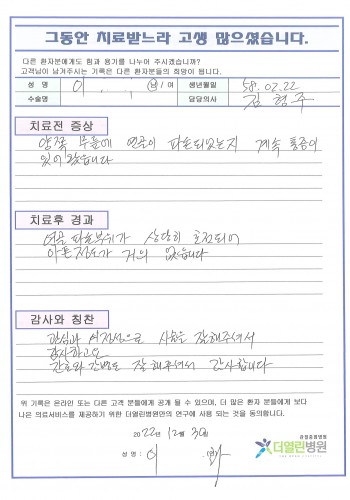 그동안 치료받느라 고생 많으셨습니다.
다른 환자분에게도 힘과 용기를 나누어 주시겠습니까?
고객님이 남겨주시는 기록은 다른 환자분들의 희망이 됩니다.
성 명 이 남 / 여 생년월일 58. 02. 22
수술명 담당의사 김형주
치료전 증상
양쪽 무릎에 연골이 파손되었는지 계속 통증이
있어 왔습니다
치료후 경과
연골 파손부위가 상당히 호전되어
아픈정도가 거의 없습니다
감사와 칭찬
관심과 열정으로 잘해주셔서
감사하고요
간호와 간병도 잘 해주셔서 감사합니다
위 기록은 온라인 또는 다른 고객 분들에게 공개 될 수 있으며, 더 많은 환자 분들에게 보다
나은 의료서비스를 제공하기 위한 더열린병원만의 연구에 사용 되는 것을 동의합니다.
2022년 12월 3일
성 명 : 이
관절중점병원
더열린병원